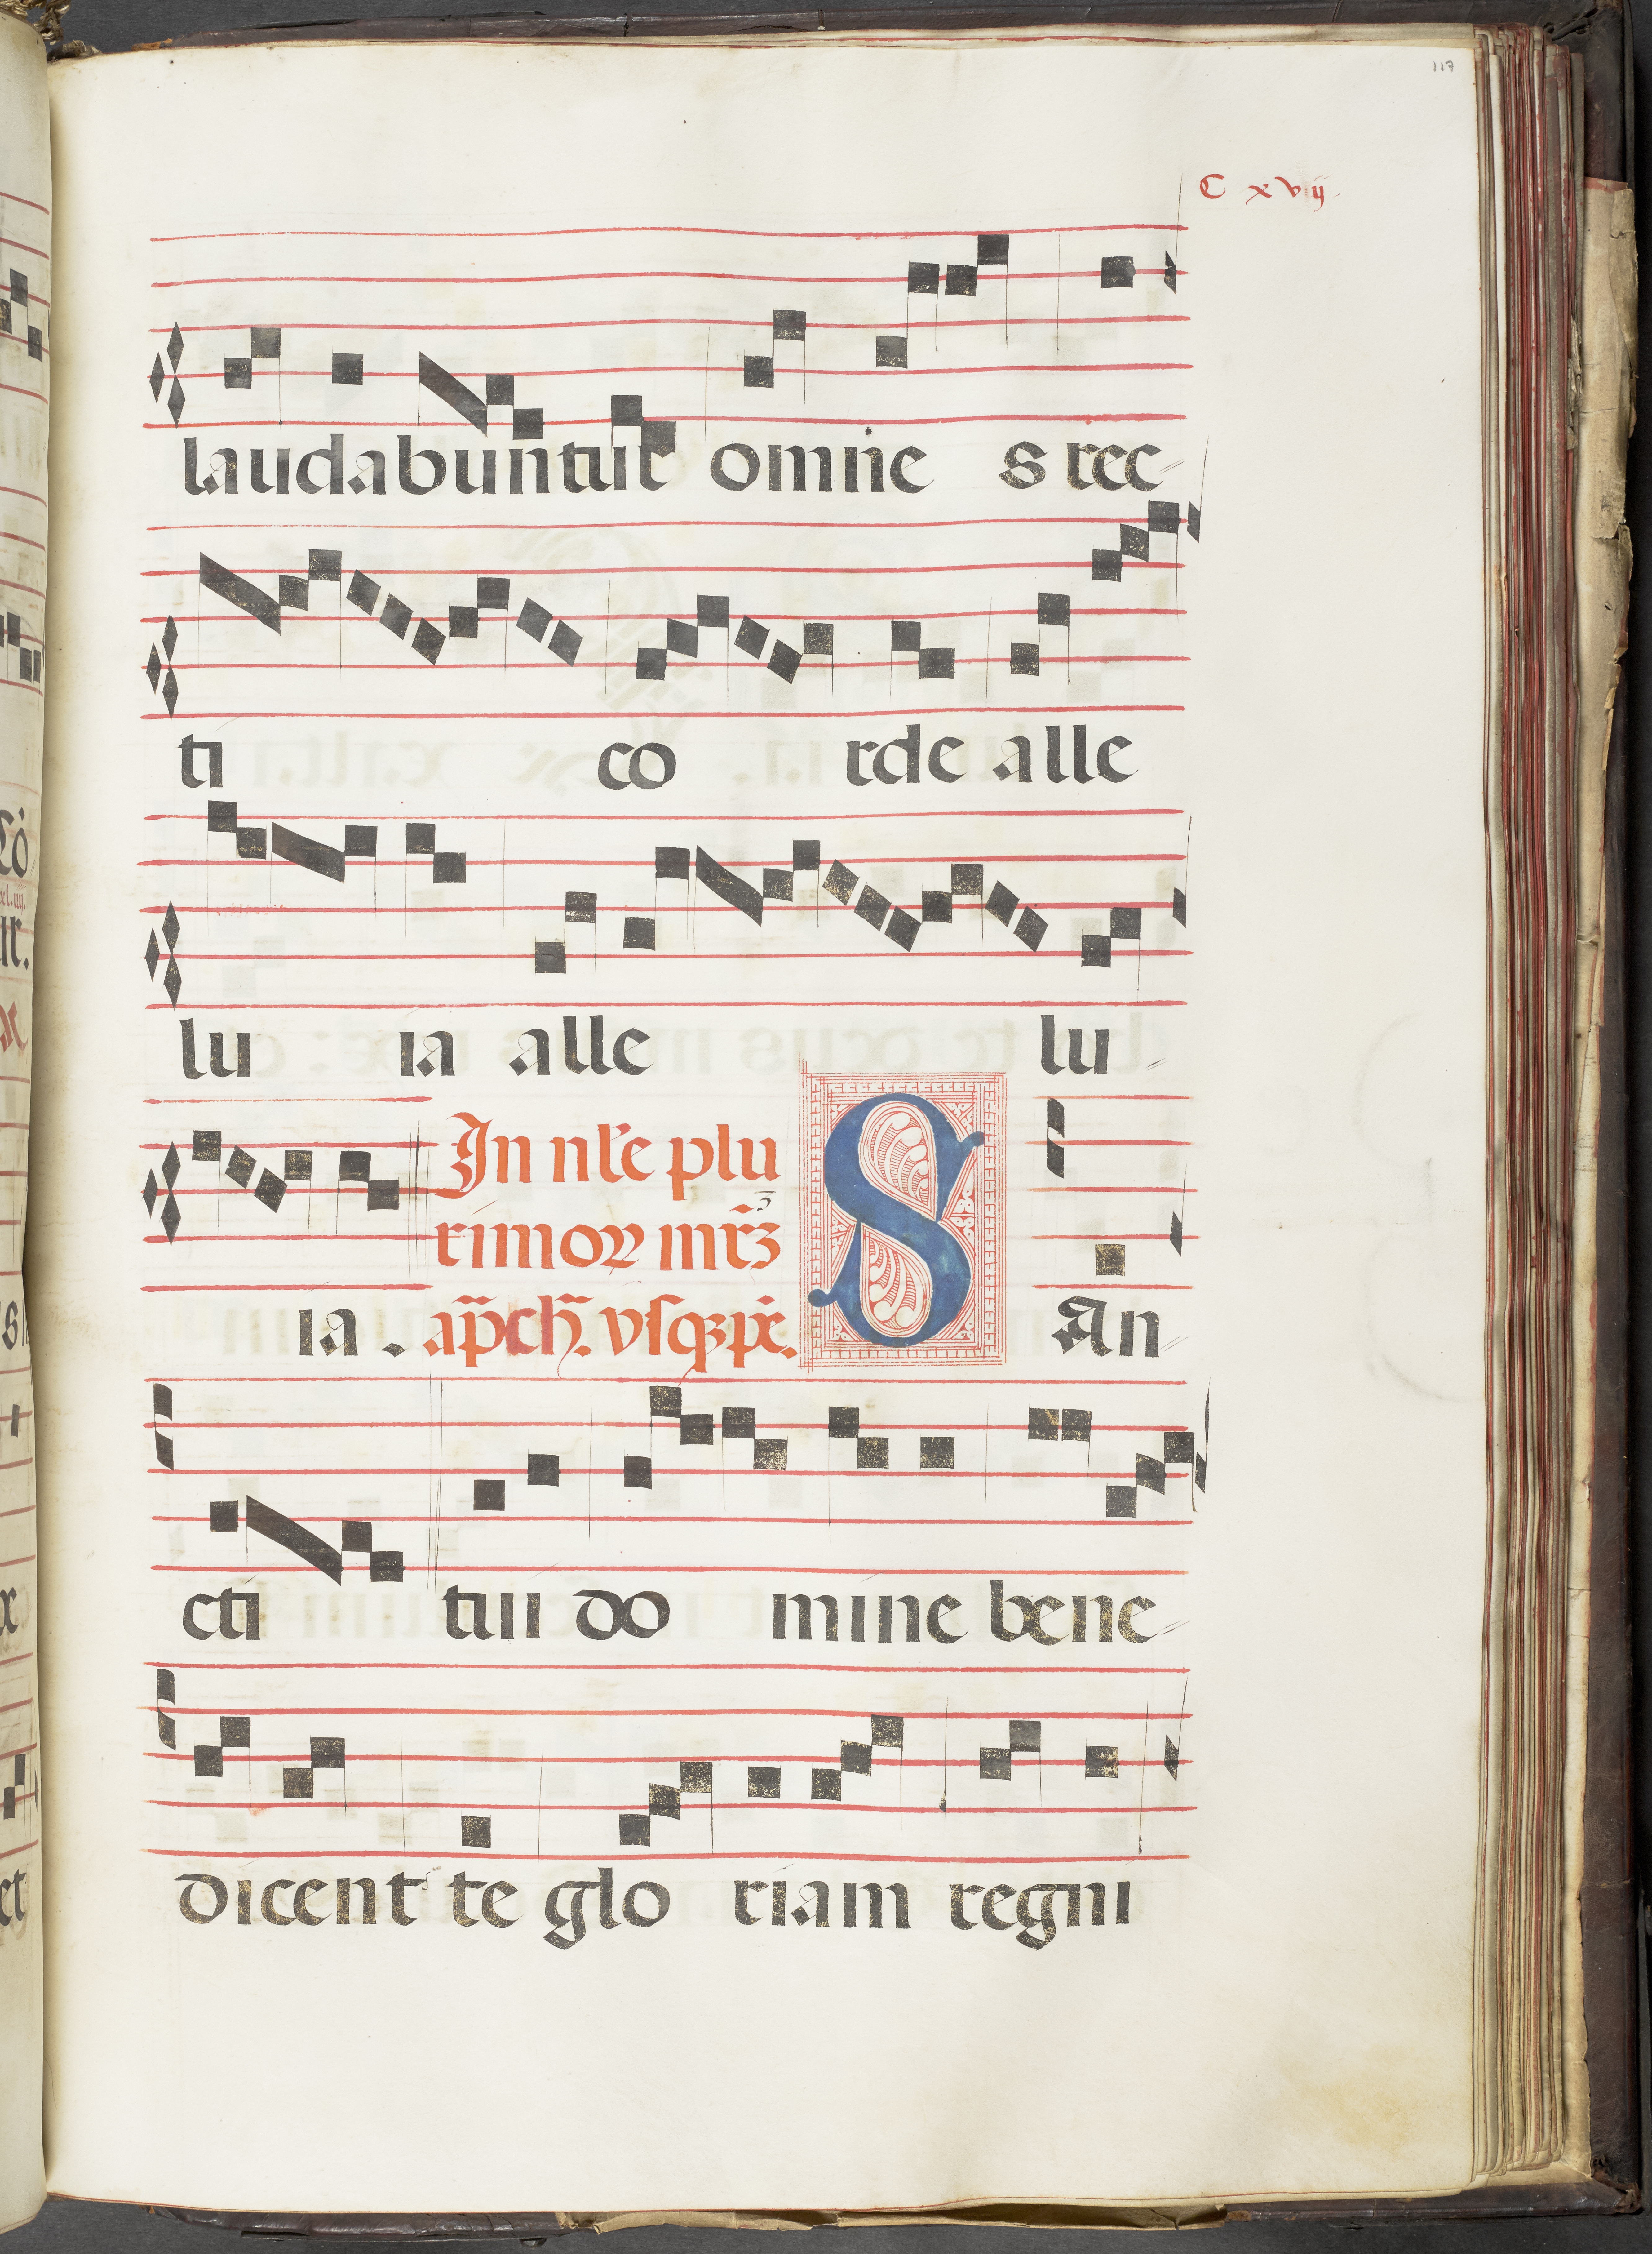 117
C xvij
laudabuntur omne s rec
ti co rde alle
lu ia alle lu
In nr̃e plu
rimoꝝ mr̃ꝫ
ia . S An
cti tui do mine bene
dicent te glo riam regni